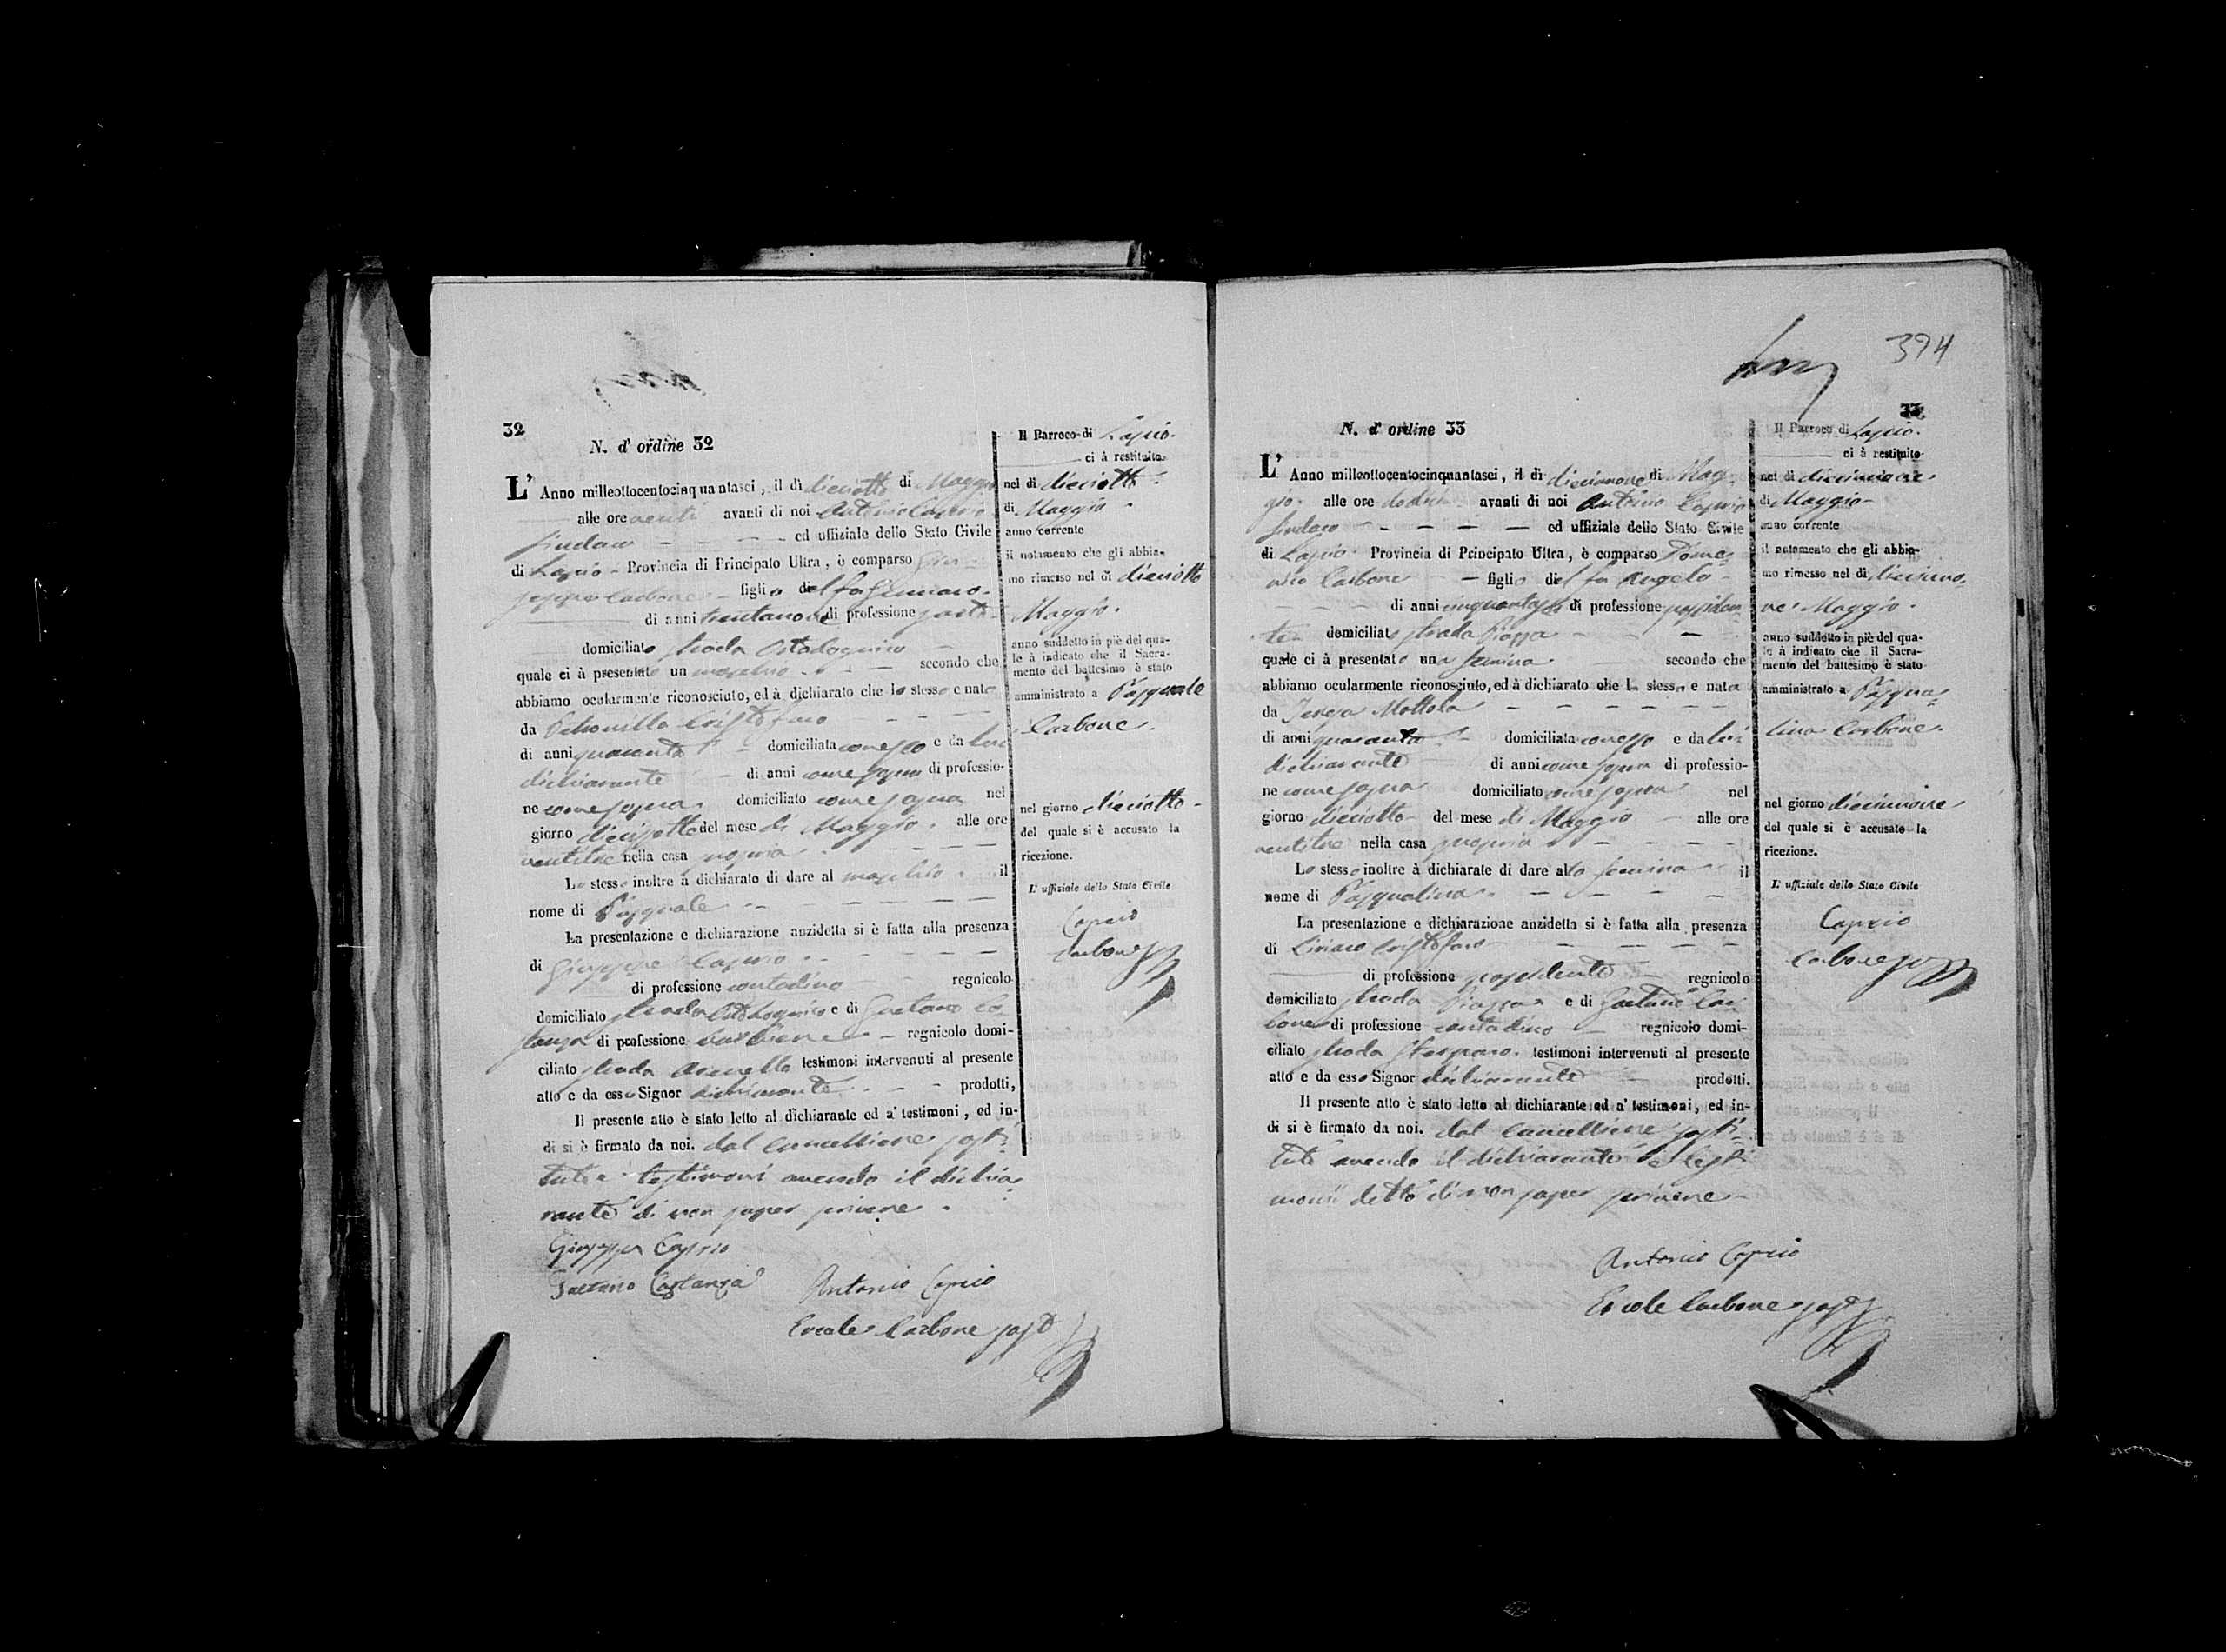 32
N. d' ordine 32
L' Anno milleottocentocinquantasei, il dì dieciotto di Maggio
alle ore venti avanti di noi Antonio Caprio
Sindaco ed uffiziale dello Stato Civile
di Lapio Provincia di Principato Ultra, è comparso Giu-
seppe Carbone figlio del fu Gennaro
di anni trentanove di professione
domiciliato strada
quale ci à presentato un maschio secondo che
abbiamo ocularmente riconosciuto, ed à dichiarato che lo stesso e nato
da Petronilla Cristofaro
di anni quaranta domiciliata con esso e da lui
dichiarante di anni come sopra di professio-
ne come sopra domiciliato come sopra nel
giorno diecisette del mese di Maggio alle ore
ventitre nella casa propria
Lo stesso inoltre à dichiarato di dare al maschio il
nome di Pasquale
La presentazione e dichiarazione anzidetta si è fatta alla presenza
di Giuseppe Caprio
di professione contadino regnicolo
domiciliato strada e di Gaetano Co-
stanza di professione barbiere regnicolo domi-
ciliato strada testimoni intervenuti al presente
atto e da esso Signor dichiarante prodotti,
Il presente atto è stato letto al dichiarante ed a' testimoni, ed in-
di si è firmato da noi. dal cancelliere sosti-
tuto e testimoni avendo il dichia-
rante di non saper scrivere
Giuseppe Caprio
Gaetano Costanza
Antonio Caprio
Ercole Carbone sost
Il Parroco di Lapio
ci à restituito
nel dì dieciotto
di Maggio
anno corrente
il notamento che gli abbia-
mo rimesso nel dì dieciotto
Maggio
anno suddetto in piè del qua-
le à indicato che il Sacra-
mento del battesimo è stato
amministrato a Pasquale
Carbone
nel giorno dieciotto
del quale si è accusato la
ricezione.
L' uffiziale dello Stato Civile
Caprio
Carbone
394
33
N. d' ordine 33
L' Anno milleottocentocinquantasei, il dì diecinnove di Mag-
gio alle ore dodici avanti di noi Antonio Caprio
Sindaco ed uffiziale dello Stato Civile
di Lapio Provincia di Principato Ultra, è comparso Dome-
nico Carbone figlio del fu Angelo
di anni di professione possiden-
te domiciliato strada Piazza
quale ci à presentato una femina secondo che
abbiamo ocularmente riconosciuto, ed à dichiarato che la stessa e nata
da Teresa Mottola
di anni quaranta domiciliata con esso e da lui
dichiarante di anni come sopra di professio-
ne come sopra domiciliato come sopra nel
giorno dieciotto del mese di Maggio alle ore
ventitre nella casa propria
Lo stesso inoltre à dichiarato di dare alla femina il
nome di Pasqualina
La presentazione e dichiarazione anzidetta si è fatta alla presenza
di Ciriaco Cristofaro
di professione possidente regnicolo
domiciliato strada Piazza e di Gaetano Car-
bone di professione contadino regnicolo domi-
ciliato strada testimoni intervenuti al presente
atto e da esso Signor dichiarante prodotti.
Il presente atto è stato letto al dichiarante ed a' testimoni, ed in-
di si è firmato da noi. dal cancelliere sosti-
tuto avendo il dichiarante e testi
monii detto di non saper scrivere
Antonio Caprio
Ercole Carbone sost
Il Parroco di Lapio
ci à restituito
nel dì diecinnove
di Maggio
anno corrente
il notamento che gli abbia-
mo rimesso nel dì diecinno-
ve Maggio
anno suddetto in piè del qua-
le à indicato che il Sacra-
mento del battesimo è stato
amministrato a Pasqua-
lina Carbone
nel giorno diecinnove
del quale si è accusato la
ricezione.
L' uffiziale dello Stato Civile
Caprio
Carbone